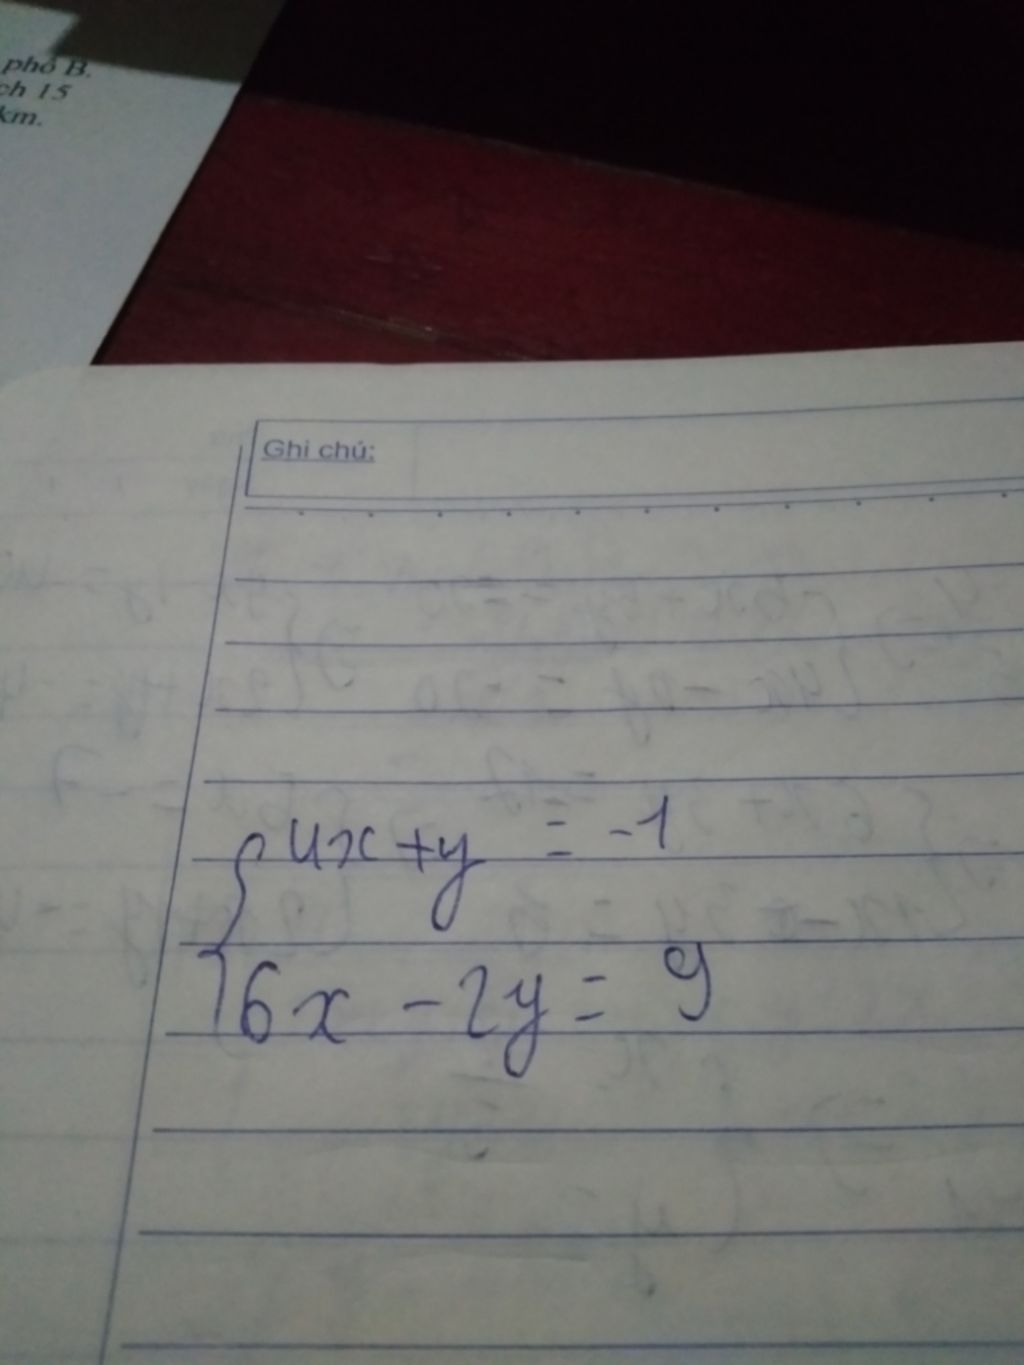 phố B.
ch 15
km.
Ghi chú:
4x + y = -1
6x - 2y = 9